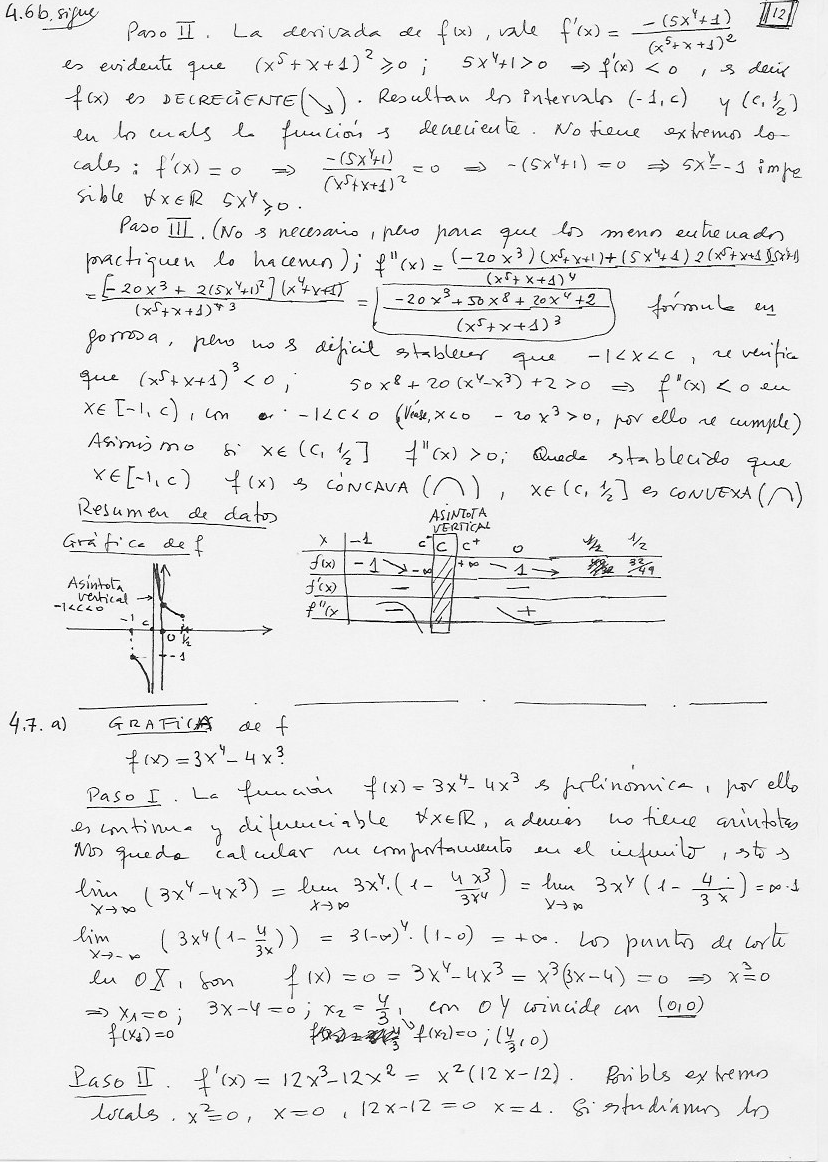 4.6b, sigue 12
Paso II. La derivada de f(x), vale f'(x) = -(5x⁴+1)/(x⁵+x+1)²
es evidente que (x⁵+x+1)² ≥ 0; 5x⁴+1 > 0 ⇒ f'(x) < 0, es decir
f(x) es DECRECIENTE (↘). Resultan los intervalos (-1, c) y (c, 1/2)
en los cuals la función es decreciente. No tiene extremos lo-
cales; f'(x) = 0 ⇒ -(5x⁴+1)/(x⁵+x+1)² = 0 ⇒ -(5x⁴+1) = 0 ⇒ 5x⁴=-1 impo
sible ∀x∈ℝ 5x⁴ ≥ 0.
Paso III. (No es necesario, pero para que los menos entrenados
practiquen lo hacemos); f''(x) = (-20x³)(x⁵+x+1)+(5x⁴+1)2(x⁵+x+1)(5x⁴+1)/(x⁵+x+1)⁴
= [-20x³ + 2(5x⁴+1)²](x⁴+x+1)/(x⁵+x+1)⁴ ³ = -20x³+50x⁸+20x⁴+2/(x⁵+x+1)³ fórmula en
gorrosa, pero no es dificil establecer que -1<x<c, se verifica
que (x⁵+x+1)³ < 0; 50x⁸+20(x⁴-x³)+2 > 0 ⇒ f''(x) < 0 en
x∈[-1, c), con -1<c<0 (Véase, x<0 -20x³>0, por ello se cumple)
Asimismo si x∈(c, 1/2] f''(x) > 0; Queda establecido que
x∈[-1, c) f(x) es CÓNCAVA (⌒), x∈(c, 1/2] es CONVEXA (⌒)
Resumen de datos
Gráfica de f
Asíntota
vertical
-1<c<0
-1 c 0 1/2
-1
ASINTOTA
VERTICAL
x -1 c⁻ c c⁺ 0 1/2 1/2
f(x) -1 ↘ -∞ +∞ 1 → 32/49
f'(x) - -
f''(x - +
4.7. a) GRAFICA de f
f(x) = 3x⁴ - 4x³.
Paso I. La función f(x) = 3x⁴ - 4x³ es polinómica, por ello
es continua y diferenciable ∀x∈ℝ, ademas no tiene asíntotas
Nos queda calcular su comportamiento en el infinito, esto es
lim x→∞ (3x⁴-4x³) = lim x→∞ 3x⁴·(1 - 4x³/3x⁴) = lim x→∞ 3x⁴(1 - 4/3x) = ∞·1
lim x→-∞ (3x⁴(1-4/3x)) = 3(-∞)⁴·(1-0) = +∞. Los puntos de corte
en OX, son f(x) = 0 = 3x⁴-4x³ = x³(3x-4) = 0 ⇒ x³=0
⇒ x₁=0; 3x-4=0; x₂ = 4/3, con OY coincide con (0,0)
f(x₁)=0 f(x₂)=0; (4/3, 0)
Paso II. f'(x) = 12x³-12x² = x²(12x-12). Posibls extremos
locals. x²=0, x=0, 12x-12=0 x=1. Si estudiamos los